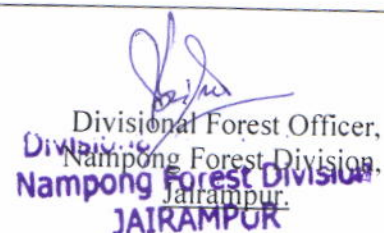 Divisional Forest Officer,
Nampong Forest Division,
Jairampur.
Nampong Forest Division
JAIRAMPUR